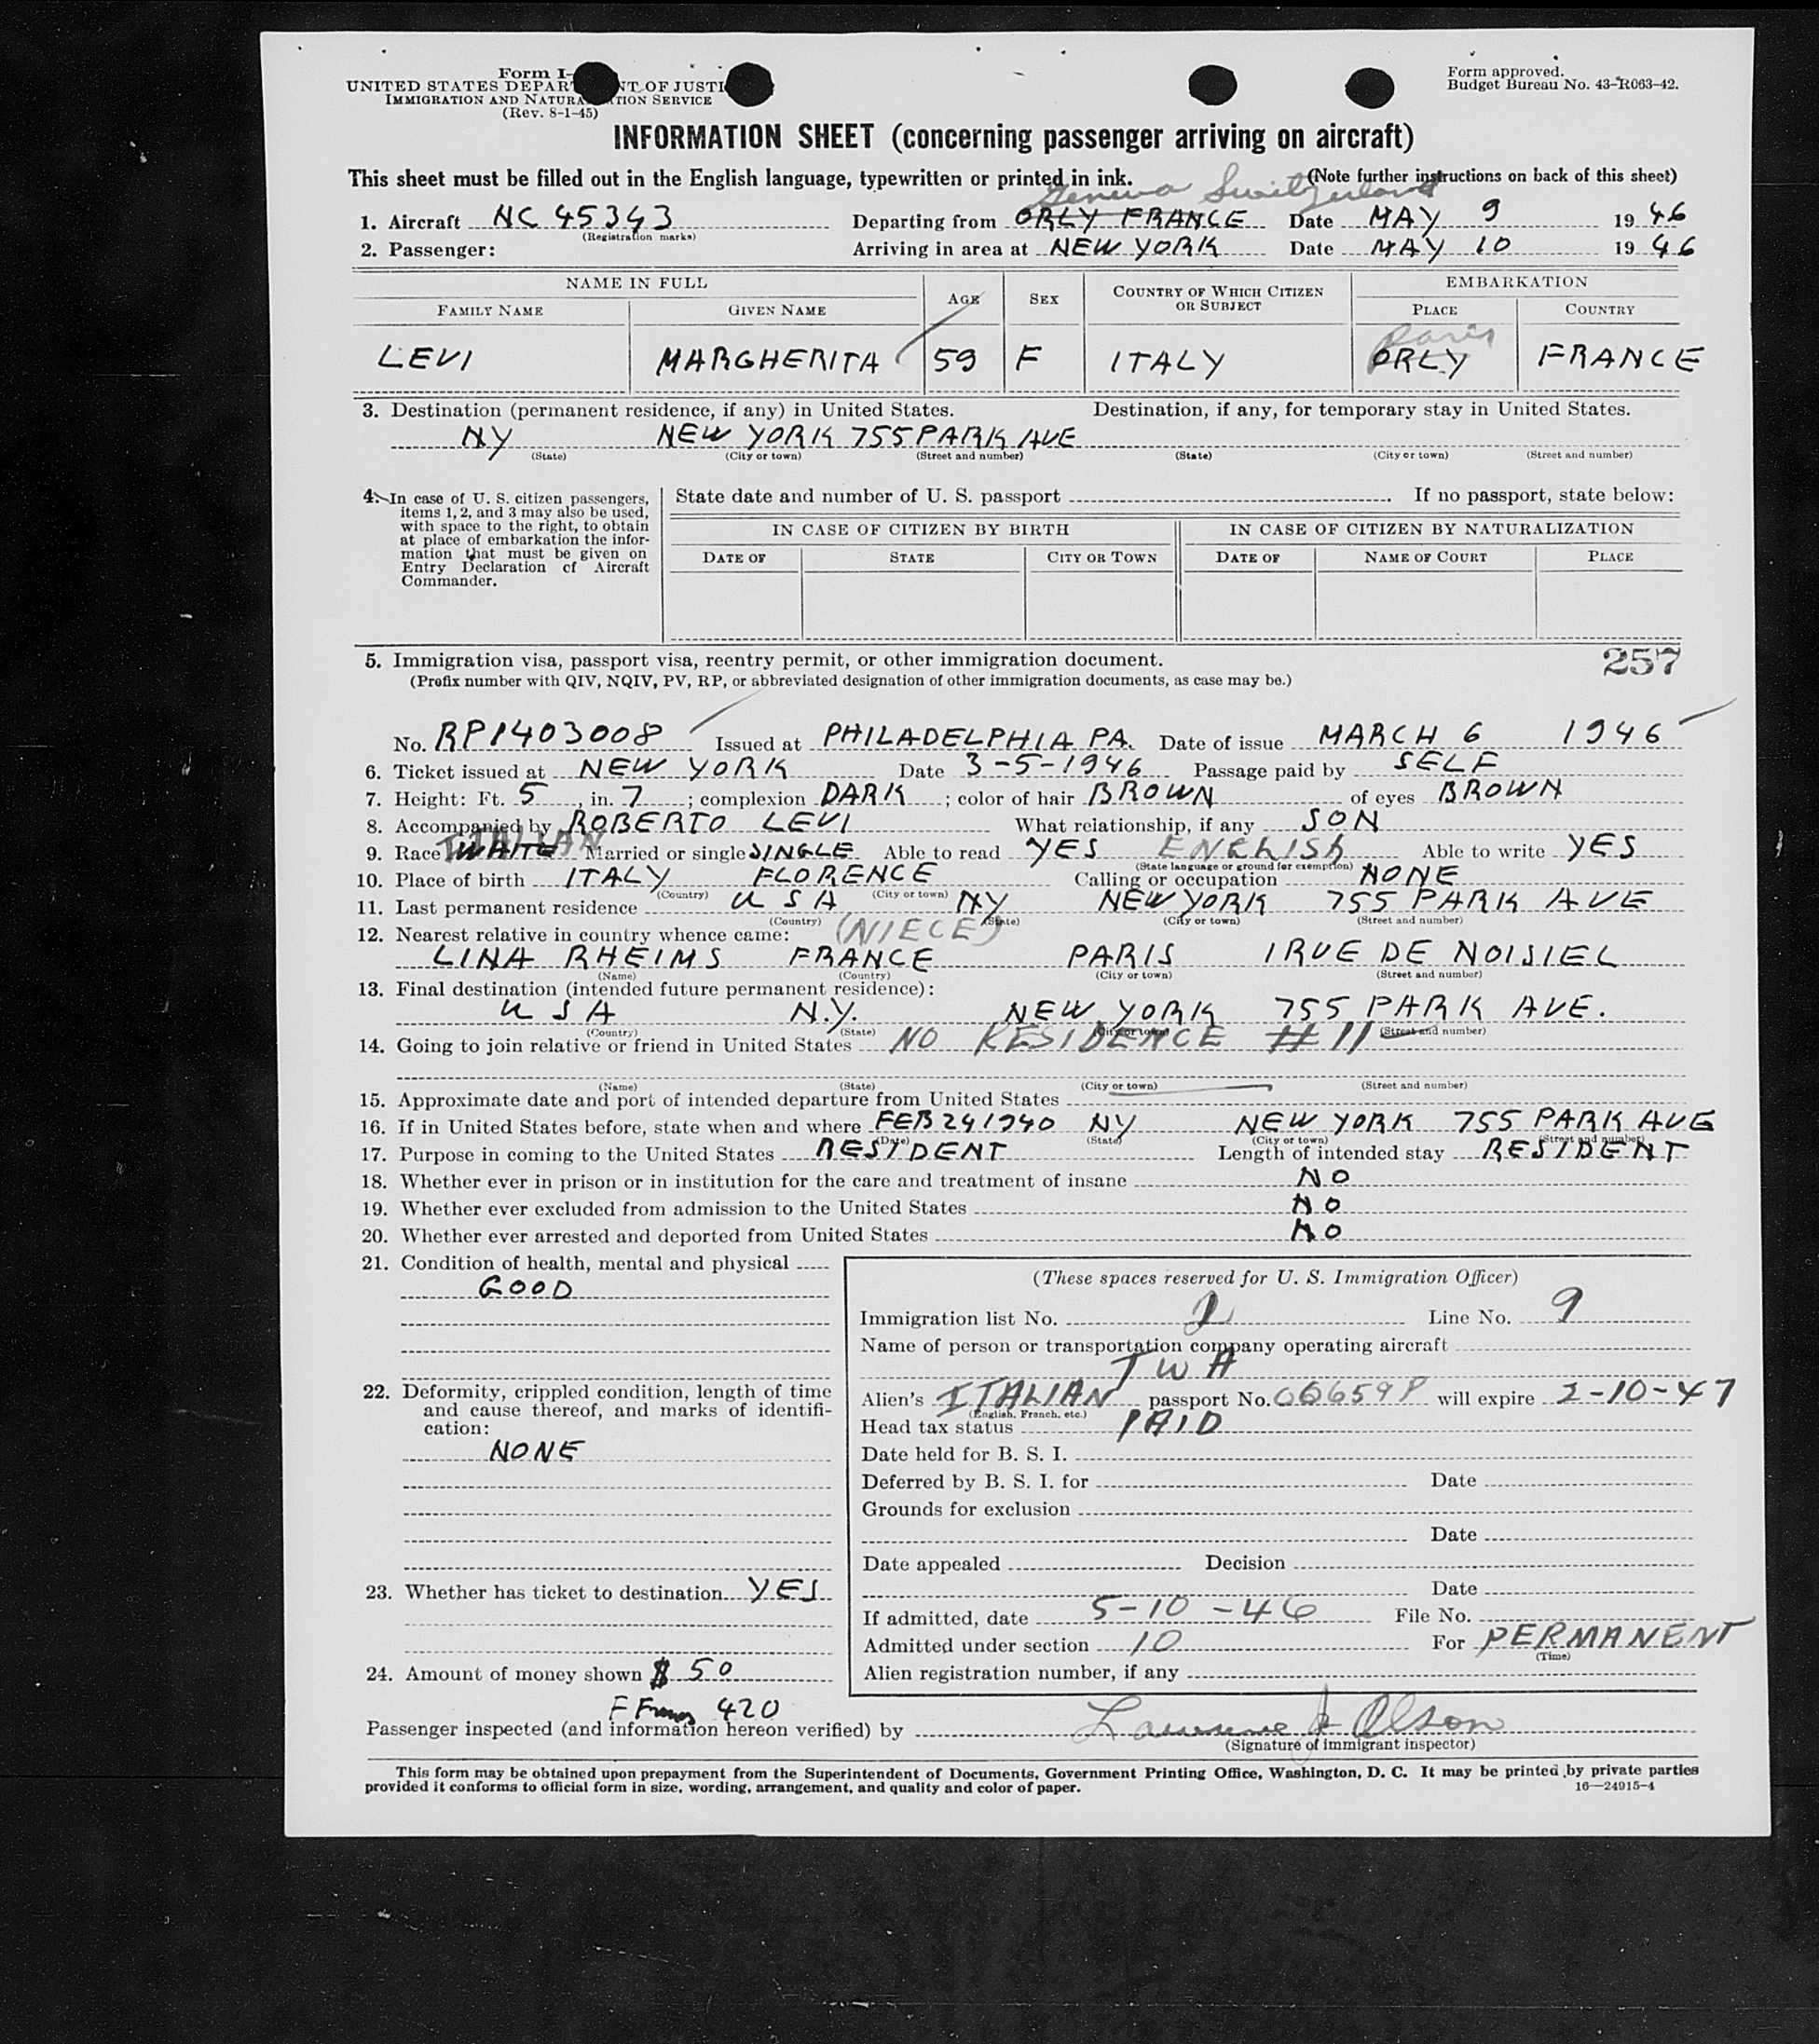 Form I-
UNITED STATES DEPART NT OF JUSTI
IMMIGRATION AND NATURA TION SERVICE
(Rev. 8-1-45)
Form approved.
Budget Bureau No. 43-R063-42.
INFORMATION SHEET (concerning passenger arriving on aircraft)
This sheet must be filled out in the English language, typewritten or printed in ink. (Note further instructions on back of this sheet)
Geneva Switzerland
1. Aircraft NC 45343 Departing from ORLY FRANCE Date MAY 9 1946
(Registration marks)
2. Passenger: Arriving in area at NEW YORK Date MAY 10 1946
NAME IN FULL AGE SEX COUNTRY OF WHICH CITIZEN OR SUBJECT EMBARKATION
FAMILY NAME GIVEN NAME PLACE COUNTRY
Paris
LEVI MARGHERITA 59 F ITALY ORLY FRANCE
3. Destination (permanent residence, if any) in United States. Destination, if any, for temporary stay in United States.
NY NEW YORK 755 PARK AVE
(State) (City or town) (Street and number) (State) (City or town) (Street and number)
4. In case of U. S. citizen passengers,
items 1, 2, and 3 may also be used,
with space to the right, to obtain
at place of embarkation the infor-
mation that must be given on
Entry Declaration of Aircraft
Commander.
State date and number of U. S. passport . If no passport, state below:
IN CASE OF CITIZEN BY BIRTH IN CASE OF CITIZEN BY NATURALIZATION
DATE OF STATE CITY OR TOWN DATE OF NAME OF COURT PLACE
5. Immigration visa, passport visa, reentry permit, or other immigration document. 257
(Prefix number with QIV, NQIV, PV, RP, or abbreviated designation of other immigration documents, as case may be.)
No. RP1403008 Issued at PHILADELPHIA PA. Date of issue MARCH 6 1946
6. Ticket issued at NEW YORK Date 3-5-1946 Passage paid by SELF
7. Height: Ft. 5, in. 7; complexion DARK; color of hair BROWN of eyes BROWN
8. Accompanied by ROBERTO LEVI What relationship, if any SON
ITALIAN
9. Race WHITE Married or single SINGLE Able to read YES ENGLISH Able to write YES
(State language or ground for exemption)
10. Place of birth ITALY FLORENCE Calling or occupation NONE
(Country) (City or town)
11. Last permanent residence U S A NY NEW YORK 755 PARK AVE
(Country) (State) (City or town) (Street and number)
12. Nearest relative in country whence came: (NIECE)
LINA RHEIMS FRANCE PARIS 1 RUE DE NOISIEL
(Name) (Country) (City or town) (Street and number)
13. Final destination (intended future permanent residence):
U S A N.Y. NEW YORK 755 PARK AVE.
(Country) (State) (City or town) (Street and number)
14. Going to join relative or friend in United States NO RESIDENCE # 11
(Name) (State) (City or town) (Street and number)
15. Approximate date and port of intended departure from United States
16. If in United States before, state when and where FEB 24 1940 NY NEW YORK 755 PARK AVE
(Date) (State) (City or town) (Street and number)
17. Purpose in coming to the United States RESIDENT Length of intended stay RESIDENT
18. Whether ever in prison or in institution for the care and treatment of insane NO
19. Whether ever excluded from admission to the United States NO
20. Whether ever arrested and deported from United States NO
21. Condition of health, mental and physical
GOOD
22. Deformity, crippled condition, length of time
and cause thereof, and marks of identifi-
cation:
NONE
23. Whether has ticket to destination YES
24. Amount of money shown $ 50
F Francs 420
(These spaces reserved for U. S. Immigration Officer)
Immigration list No. 2 Line No. 9
Name of person or transportation company operating aircraft
TWA
Alien's ITALIAN passport No. 006659P will expire 2-10-47
(English, French, etc.)
Head tax status PAID
Date held for B. S. I.
Deferred by B. S. I. for Date
Grounds for exclusion
Date
Date appealed Decision
Date
If admitted, date 5-10-46 File No.
Admitted under section 10 For PERMANENT
(Time)
Alien registration number, if any
Passenger inspected (and information hereon verified) by Lawrence J Olson
(Signature of immigrant inspector)
This form may be obtained upon prepayment from the Superintendent of Documents, Government Printing Office, Washington, D. C. It may be printed by private parties
provided it conforms to official form in size, wording, arrangement, and quality and color of paper. 16—24915-4